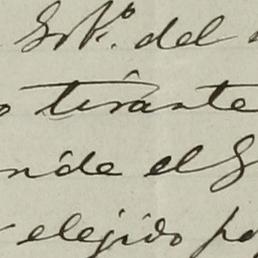 Srio. del
tirante
nde el G
elejido po